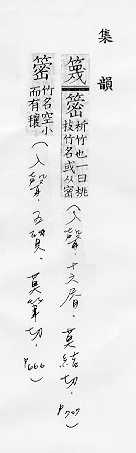 集韻
篾䈼析竹也一曰桃枝竹名或从密(入聲．十六屑．莫結切．P707)
䈼竹名空小而有穰(入聲．五質．莫筆切．P666)